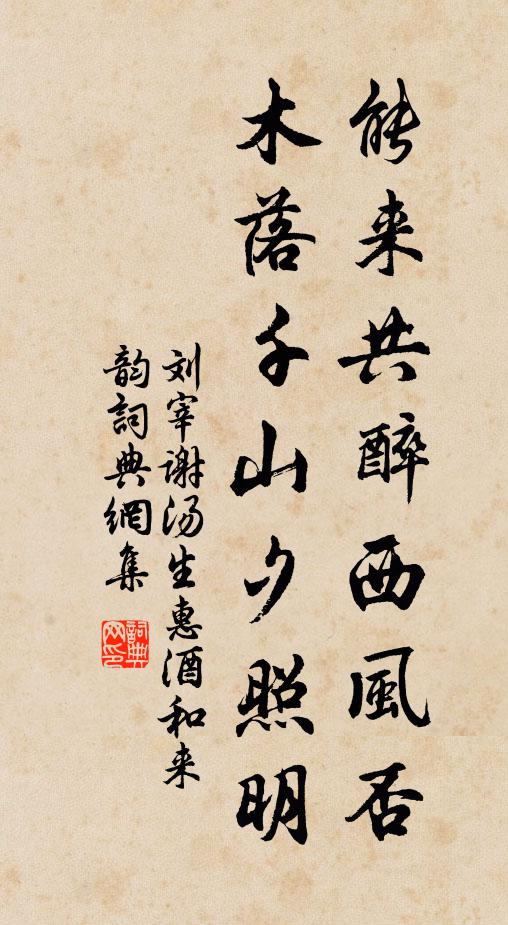 能来共醉西風否
木落千山夕照明
刘宰谢汤生惠酒和来
韵詞典網集
詞典網印